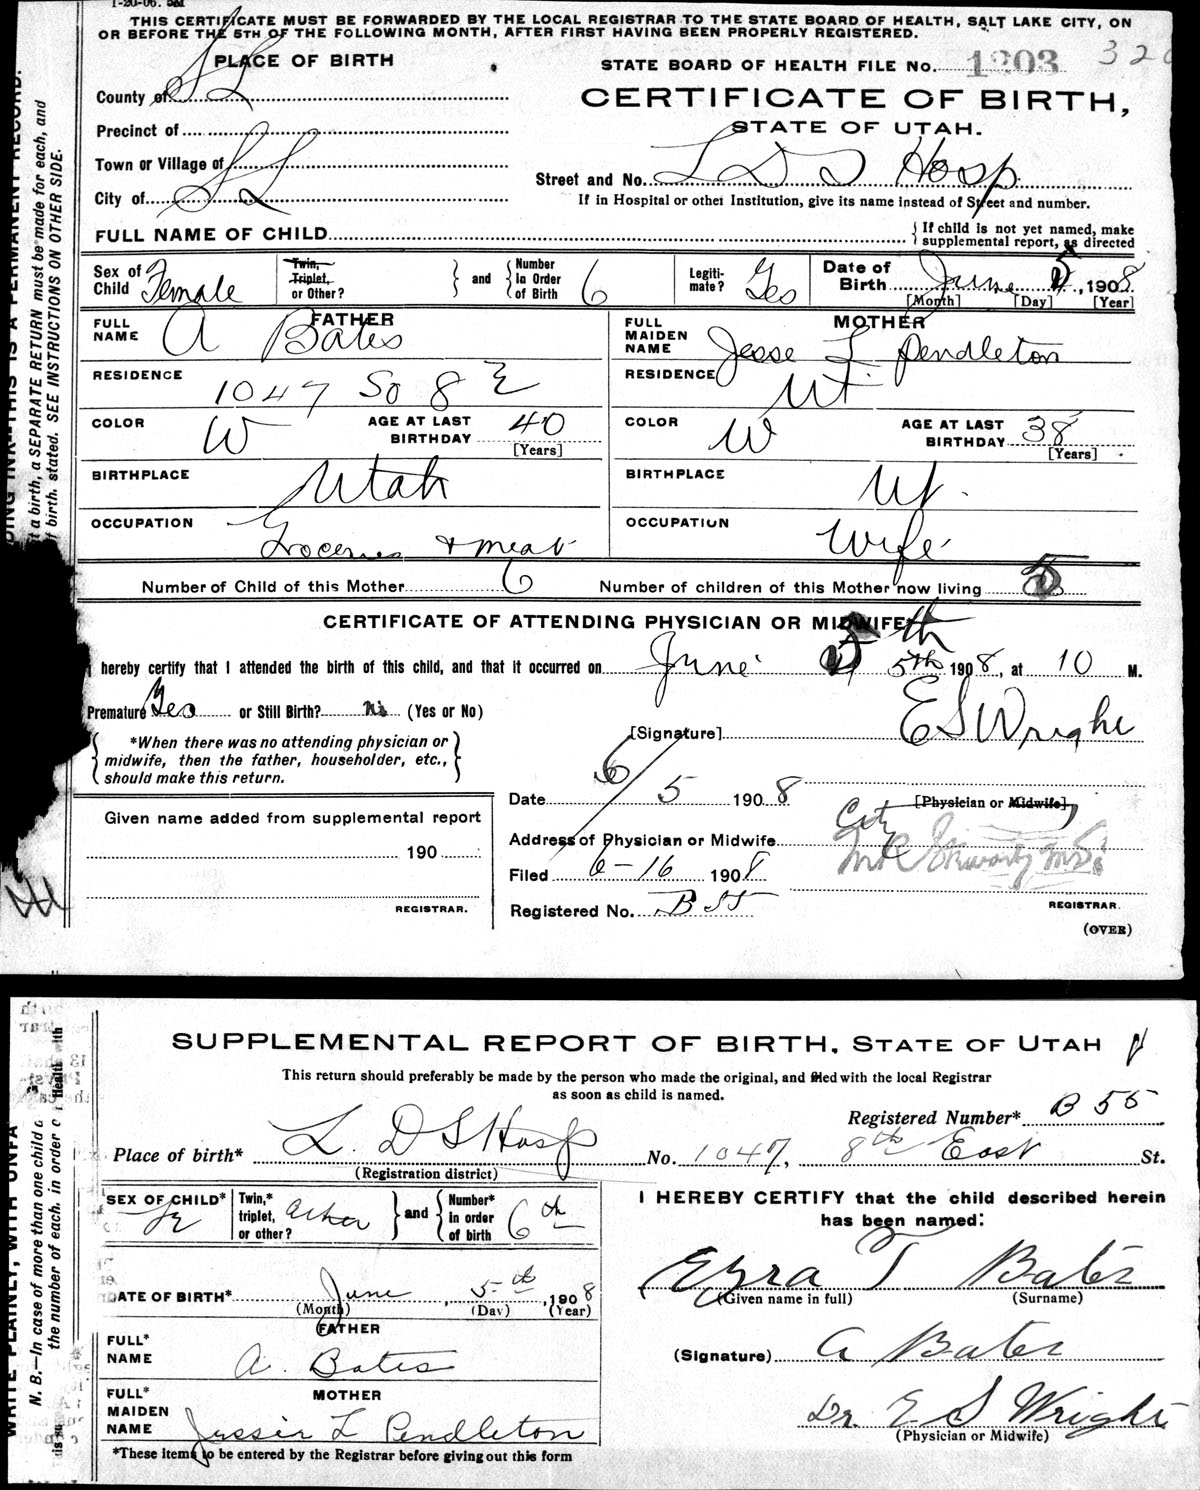 1-20-06. 5M
THIS CERTIFICATE MUST BE FORWARDED BY THE LOCAL REGISTRAR TO THE STATE BOARD OF HEALTH, SALT LAKE CITY, ON
OR BEFORE THE 5TH OF THE FOLLOWING MONTH, AFTER FIRST HAVING BEEN PROPERLY REGISTERED.
PLACE OF BIRTH
STATE BOARD OF HEALTH FILE No. 1203
County of SL
CERTIFICATE OF BIRTH,
Precinct of
STATE OF UTAH.
Town or Village of
Street and No. LDS Hosp
City of SL
If in Hospital or other Institution, give its name instead of Street and number.
FULL NAME OF CHILD
{ If child is not yet named, make supplemental report, as directed
Sex of Child Female
Twin, Triplet, or Other? } and { Number in Order of Birth 6
Legitimate? Yes
Date of Birth June 5, 1908
[Month] [Day] [Year]
FATHER
FULL NAME A Bates
RESIDENCE 1047 So 8 E
COLOR W AGE AT LAST BIRTHDAY 40 [Years]
BIRTHPLACE Utah
OCCUPATION Groceries + meat
MOTHER
FULL MAIDEN NAME Jesse L Pendleton
RESIDENCE Ut
COLOR W AGE AT LAST BIRTHDAY 38 [Years]
BIRTHPLACE Ut.
OCCUPATION Wife
Number of Child of this Mother 6 Number of children of this Mother now living 5
CERTIFICATE OF ATTENDING PHYSICIAN OR MIDWIFE
I hereby certify that I attended the birth of this child, and that it occurred on June 5th 5th 1908, at 10 M.
Premature Yes or Still Birth? No (Yes or No)
[Signature] E S Wright
{ *When there was no attending physician or midwife, then the father, householder, etc., should make this return. }
Date 6/5 1908
[Physician or Midwife]
Given name added from supplemental report
Address of Physician or Midwife City
190
Filed 6-16 1908
REGISTRAR.
Registered No. B 55
REGISTRAR.
(OVER)
SUPPLEMENTAL REPORT OF BIRTH, STATE OF UTAH
This return should preferably be made by the person who made the original, and filed with the local Registrar
as soon as child is named.
Registered Number* B 55
Place of birth* L. D S Hosp No. 1047, 8th East St.
(Registration district)
SEX OF CHILD*
Twin,* triplet, or other? other } and { Number* in order of birth 6th
I HEREBY CERTIFY that the child described herein
has been named:
Ezra T Bates
(Given name in full) (Surname)
DATE OF BIRTH* June, 5th, 1908
(Month) (Day) (Year)
FATHER
FULL* NAME A. Bates
(Signature) A Bates
MOTHER
FULL* MAIDEN NAME Jessie L Pendleton
Dr. E S Wright
(Physician or Midwife)
*These items to be entered by the Registrar before giving out this form